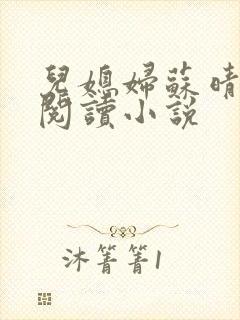 兒媳婦蘇晴
閱讀小說
沐箐箐1